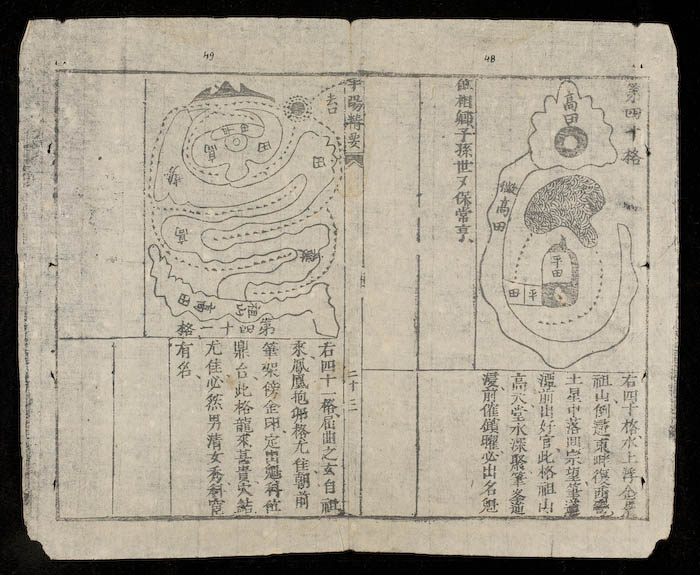 48
第四十格
高田
微高田
平田
平田
右四十格水土浮金星
祖山倒迍東畔復西
土星中落囬宗望筆
潭前出好官此格祖山
高天堂水深聚筆峯通
漫前催鎖曜必出名魁
但相卿子孫世〻保常亨
平陽精要
二十三
49
去口
平田
高田
微高
微高田
祖山
第四十一格
右四十一格屈曲之玄自祖
來鳳凰抱卵格尤佳朝前
筆架傍金印定出魁科位
鼎台此格龍來甚貴穴結
尤佳必然男清女秀科宦
有名